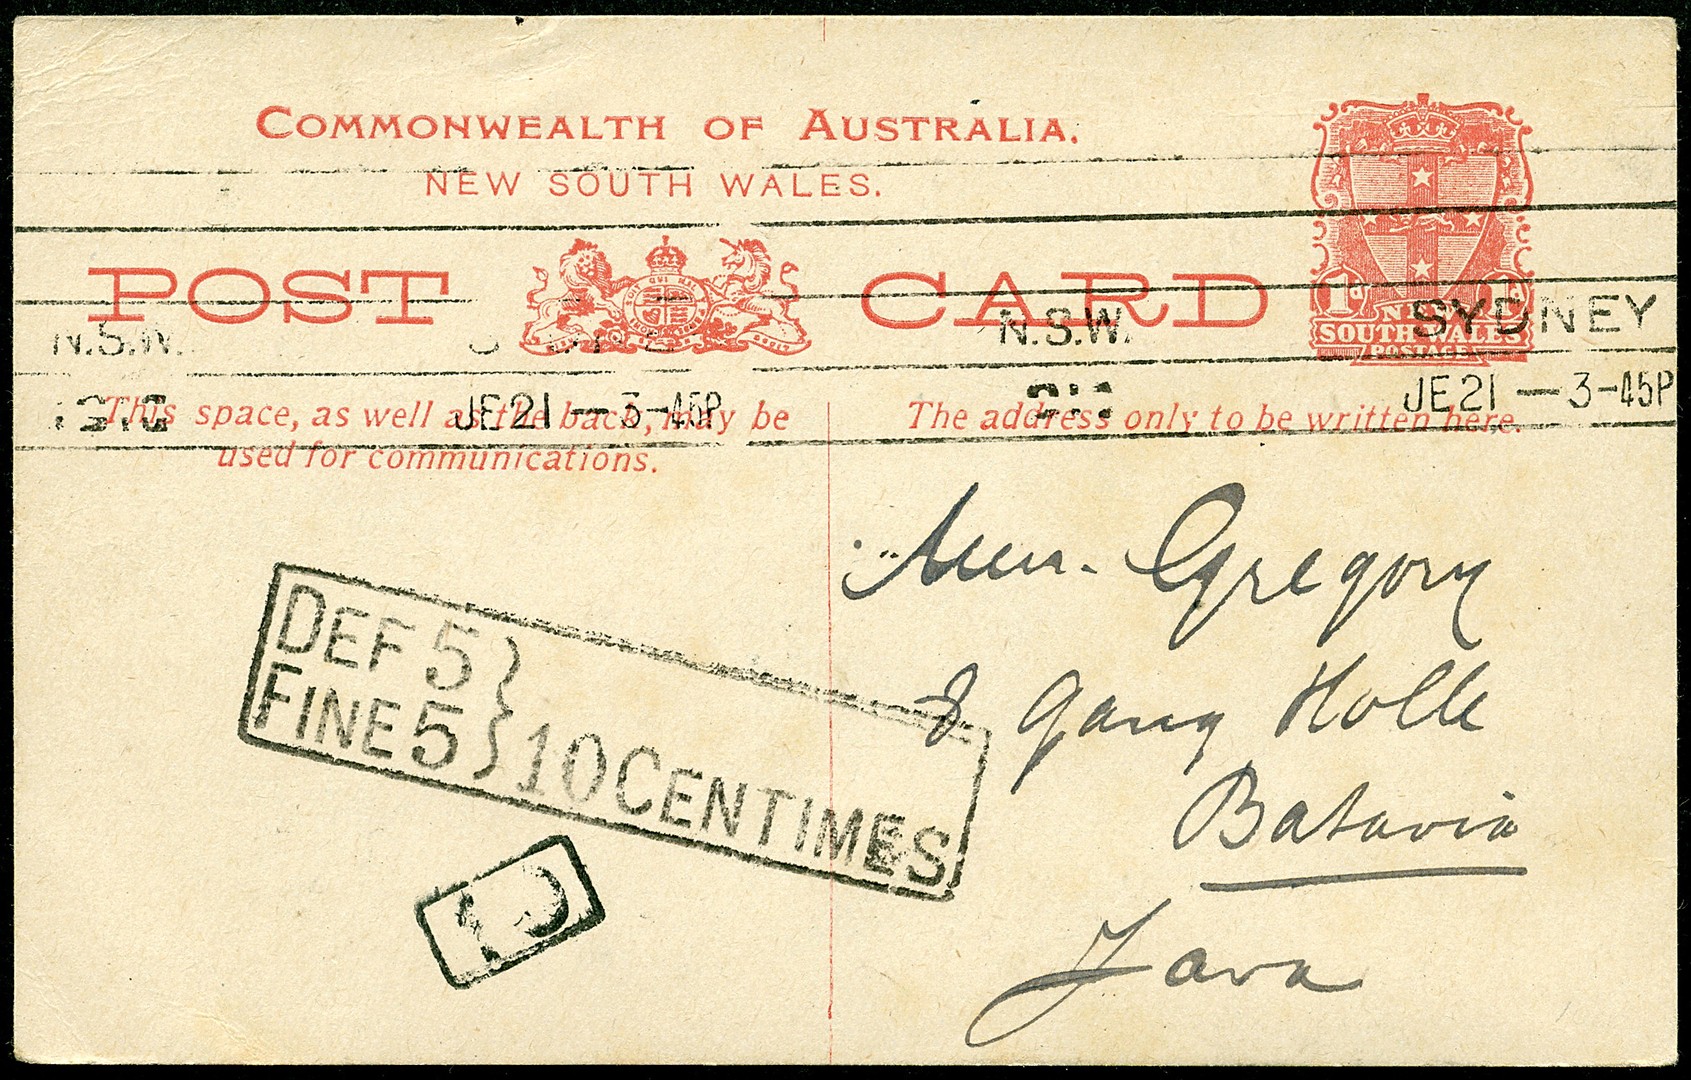 COMMONWEALTH OF AUSTRALIA.
NEW SOUTH WALES.
POST CARD
1d 1d
SOUTH WALES
POSTAGE
N.S.W. N.S.W. SYDNEY
JE21 — 3-45P JE21 — 3-45P
This space, as well as the back, may be
used for communications.
The address only to be written here.
DEF 5
FINE 5
} 10 CENTIMES
10
Gregory
Gang Holle
Batavia
Java